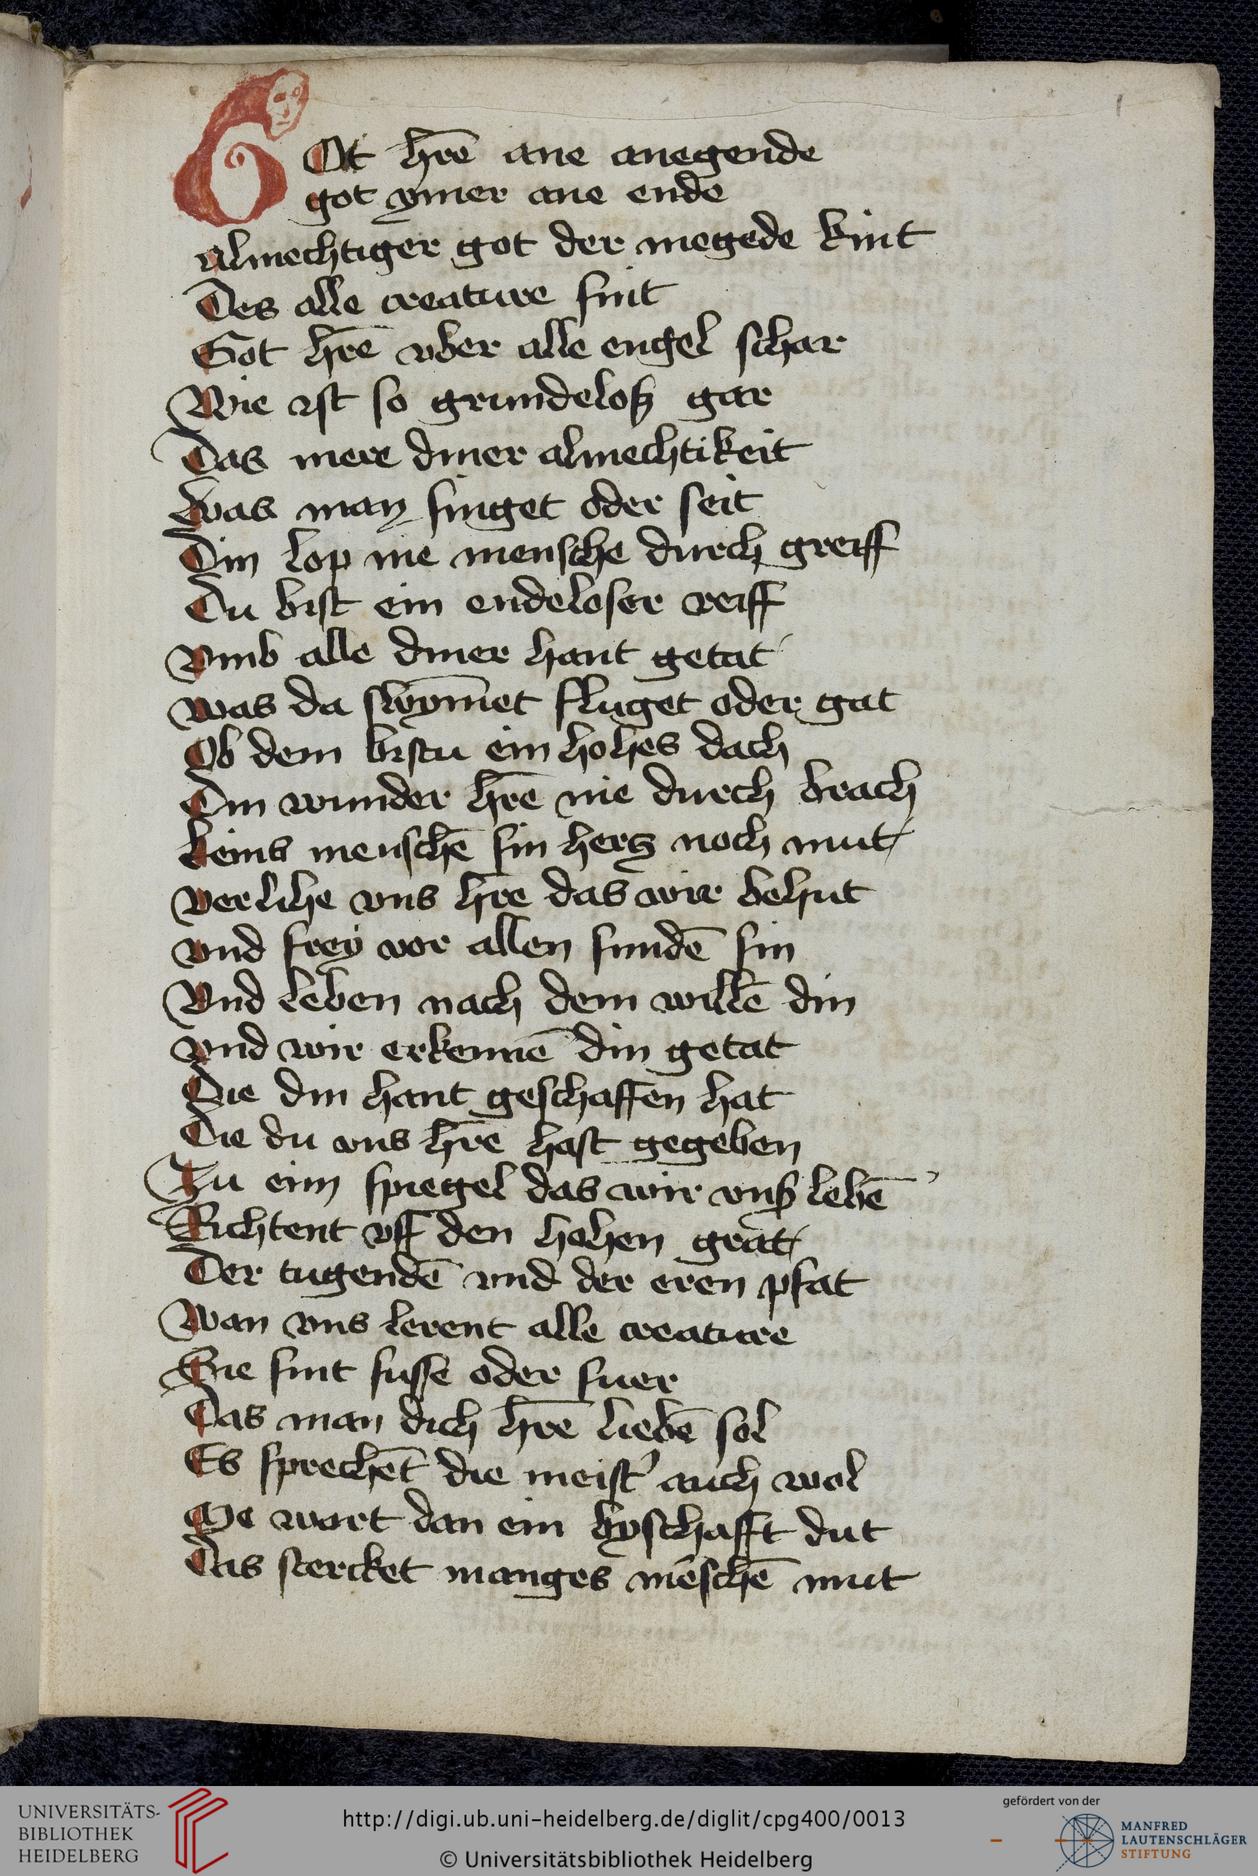 1
GOt hr̄e ane anegende
got ymer ane ende
almechtiger got der megede kint
Des alle creature sint
Got hr̄e vber alle engel schar
Wie ist so grundeloß gar
Das mere diner almechtikeit
Was man singet oder seit
Din lop nie mensche durch greiff
Du bist ein endeloser reiff
Vmb alle diner hant getat
Was da swym̄et fluget oder gat
Ob dem bistu ein hohes dach
Din wunder hr̄e nie durch brach
keins menschē sin hertz noch mut
verlihe vns hr̄e das wir behut
vnd frey vor allen sundē sin
Vnd leben nach dem willē din
vnd wir erkennē din getat
Die din hant geschaffen hat
Die du vns hr̄e hast gegeben
Zu eim spiegel das wir vnß lebē
Richtent vff den hohen grat
Der tugendē vnd der eren pfat
Wan vns lerent alle creature
Sie sint susse oder suer
Das man dich hr̄e liebē sol
Es sprechēt die meist' auch wol
Se wort dan ein byschafft dut
Das stercket manges mēschē mut
UNIVERSITÄTS-
BIBLIOTHEK
HEIDELBERG
http://digi.ub.uni-heidelberg.de/diglit/cpg400/0013
© Universitätsbibliothek Heidelberg
gefördert von der
MANFRED
LAUTENSCHLÄGER
STIFTUNG